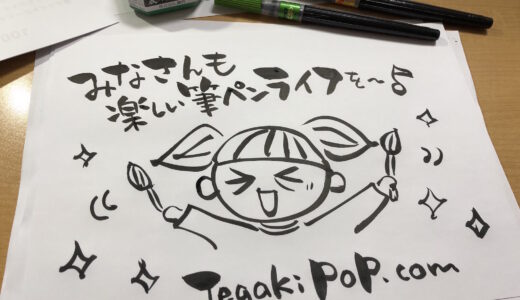 みなさんも
楽しい筆ペンライフを〜♪
Tegaki POP.com